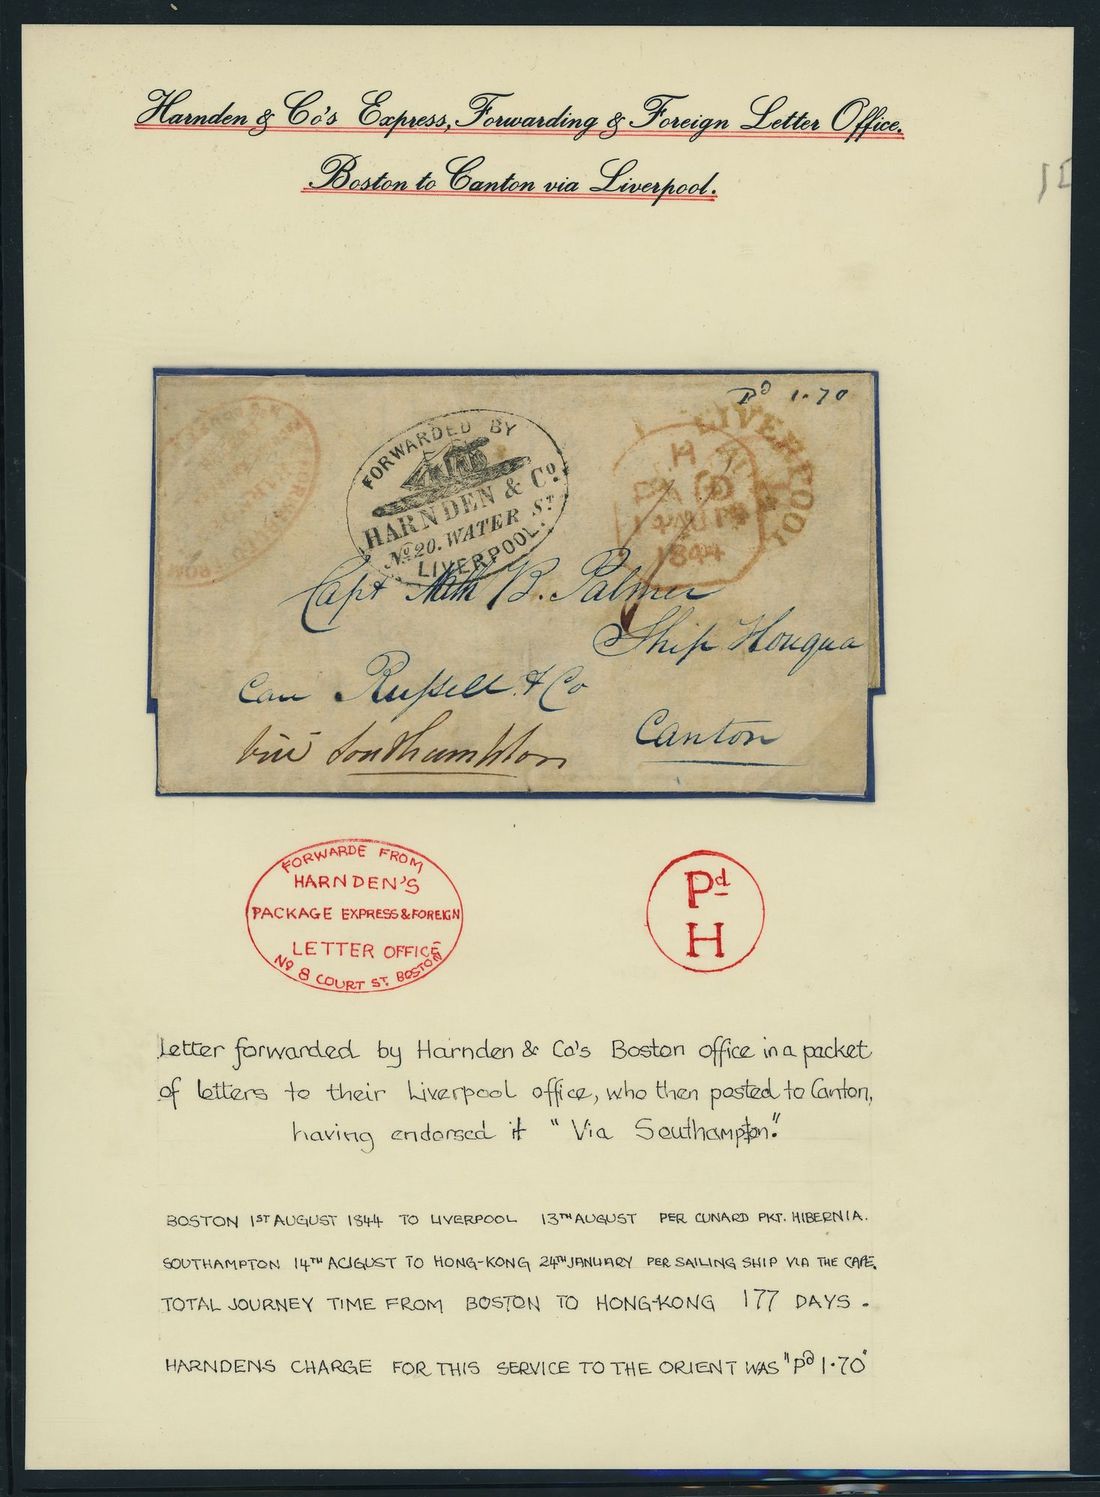 Harnden & Co's Express, Forwarding & Foreign Letter Office.
Boston to Canton via Liverpool.
Pd 1.70
FORWARDED BY
HARNDEN & Co.
No 20. WATER St.
LIVERPOOL.
LIVERPOOL
H
PAID
1844
Capt Nath B. Palmer
Ship Houqua
Care Russell & Co
Canton
via Southampton
FORWARDE FROM
HARNDEN'S
PACKAGE EXPRESS & FOREIGN
LETTER OFFICE
No 8 COURT ST. BOSTON
Pd
H
Letter forwarded by Harnden & Co's Boston office in a packet
of letters to their Liverpool office, who then posted to Canton,
having endorsed it "Via Southampton."
BOSTON 1ST AUGUST 1844 TO LIVERPOOL 13TH AUGUST PER CUNARD PKT. HIBERNIA.
SOUTHAMPTON 14TH AUGUST TO HONG-KONG 24TH JANUARY PER SAILING SHIP VIA THE CAPE.
TOTAL JOURNEY TIME FROM BOSTON TO HONG-KONG 177 DAYS.
HARNDENS CHARGE FOR THIS SERVICE TO THE ORIENT WAS "Pd 1.70"